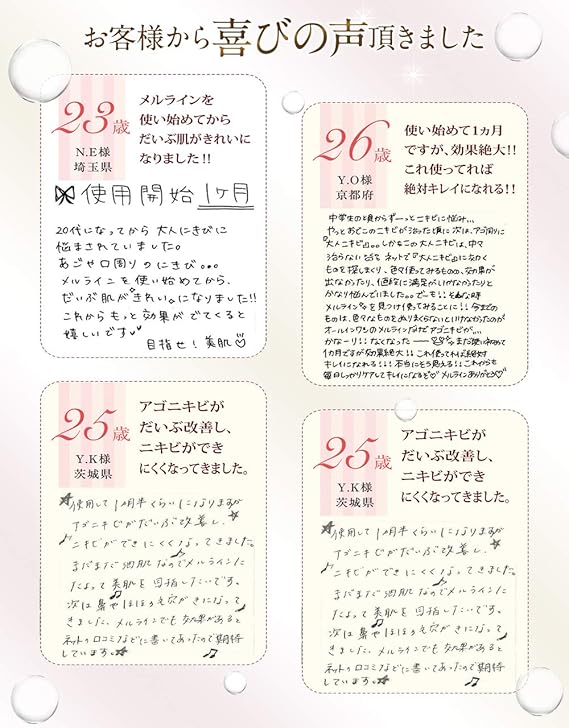 お客様から喜びの声頂きました
23歳
N.E様
埼玉県
メルラインを
使い始めてから
だいぶ肌がきれいに
なりました!!
使用開始 1ヶ月
20代になってから 大人にきびに
悩まされていました。
あごや口周りのにきび。。。
メルラインを使い始めてから、
だいぶ肌がきれいになりました!!
これからもっと効果がでてくると
嬉しいです♥
目指せ!美肌♡
26歳
Y.O様
京都府
使い始めて1ヵ月
ですが、効果絶大!!
これ使ってれば
絶対キレイになれる!!
中学生の頃からずーっとニキビに悩み…
やっとおでこのニキビが治った頃に次は、アゴ周りに
『大人ニキビ』。。しかもこの大人ニキビは、中々
治らない
ネットで『大人ニキビ』に効く
ものを探しまくり、色々使ってみるものの、効果が
出なかったり、値段に満足がいかなかったりと
かなり悩んでいました。。でーも!!そんな時
メルラインを見つけ使ってみることに!!今までの
ものは、色々なものをぬりまくらないといけなかったのが
オールインワンのメルラインだけでアゴニキビが…
かなーり!!なくなったー
まだ使い初めて
1カ月ですが効果絶大!!これ使ってれば絶対
キレイになれる!!!本当にそう思える!!これからも
毎日しっかりケアしてキレイになるぞ♡メルラインありがとう♡
25歳
Y.K様
茨城県
アゴニキビが
だいぶ改善し、
ニキビができ
にくくなってきました。
使用して1ヶ月半くらいになりますが
アゴニキビがだいぶ改善し、
ニキビができにくくなってきました。
まだまだ油肌なのでメルラインに
たよって美肌を目指したいです。
次は鼻やほほの毛穴がきになって
きました。メルラインでも効果があると
ネットの口コミなどに書いてあったので期待
しています。
25歳
Y.K様
茨城県
アゴニキビが
だいぶ改善し、
ニキビができ
にくくなってきました。
使用して1ヶ月半くらいになりますが
アゴニキビがだいぶ改善し、
ニキビができにくくなってきました。
まだまだ油肌なのでメルラインに
たよって美肌を目指したいです。
次は鼻やほほの毛穴がきになって
きました。メルラインでも効果があると
ネットの口コミなどに書いてあったので期待
しています。